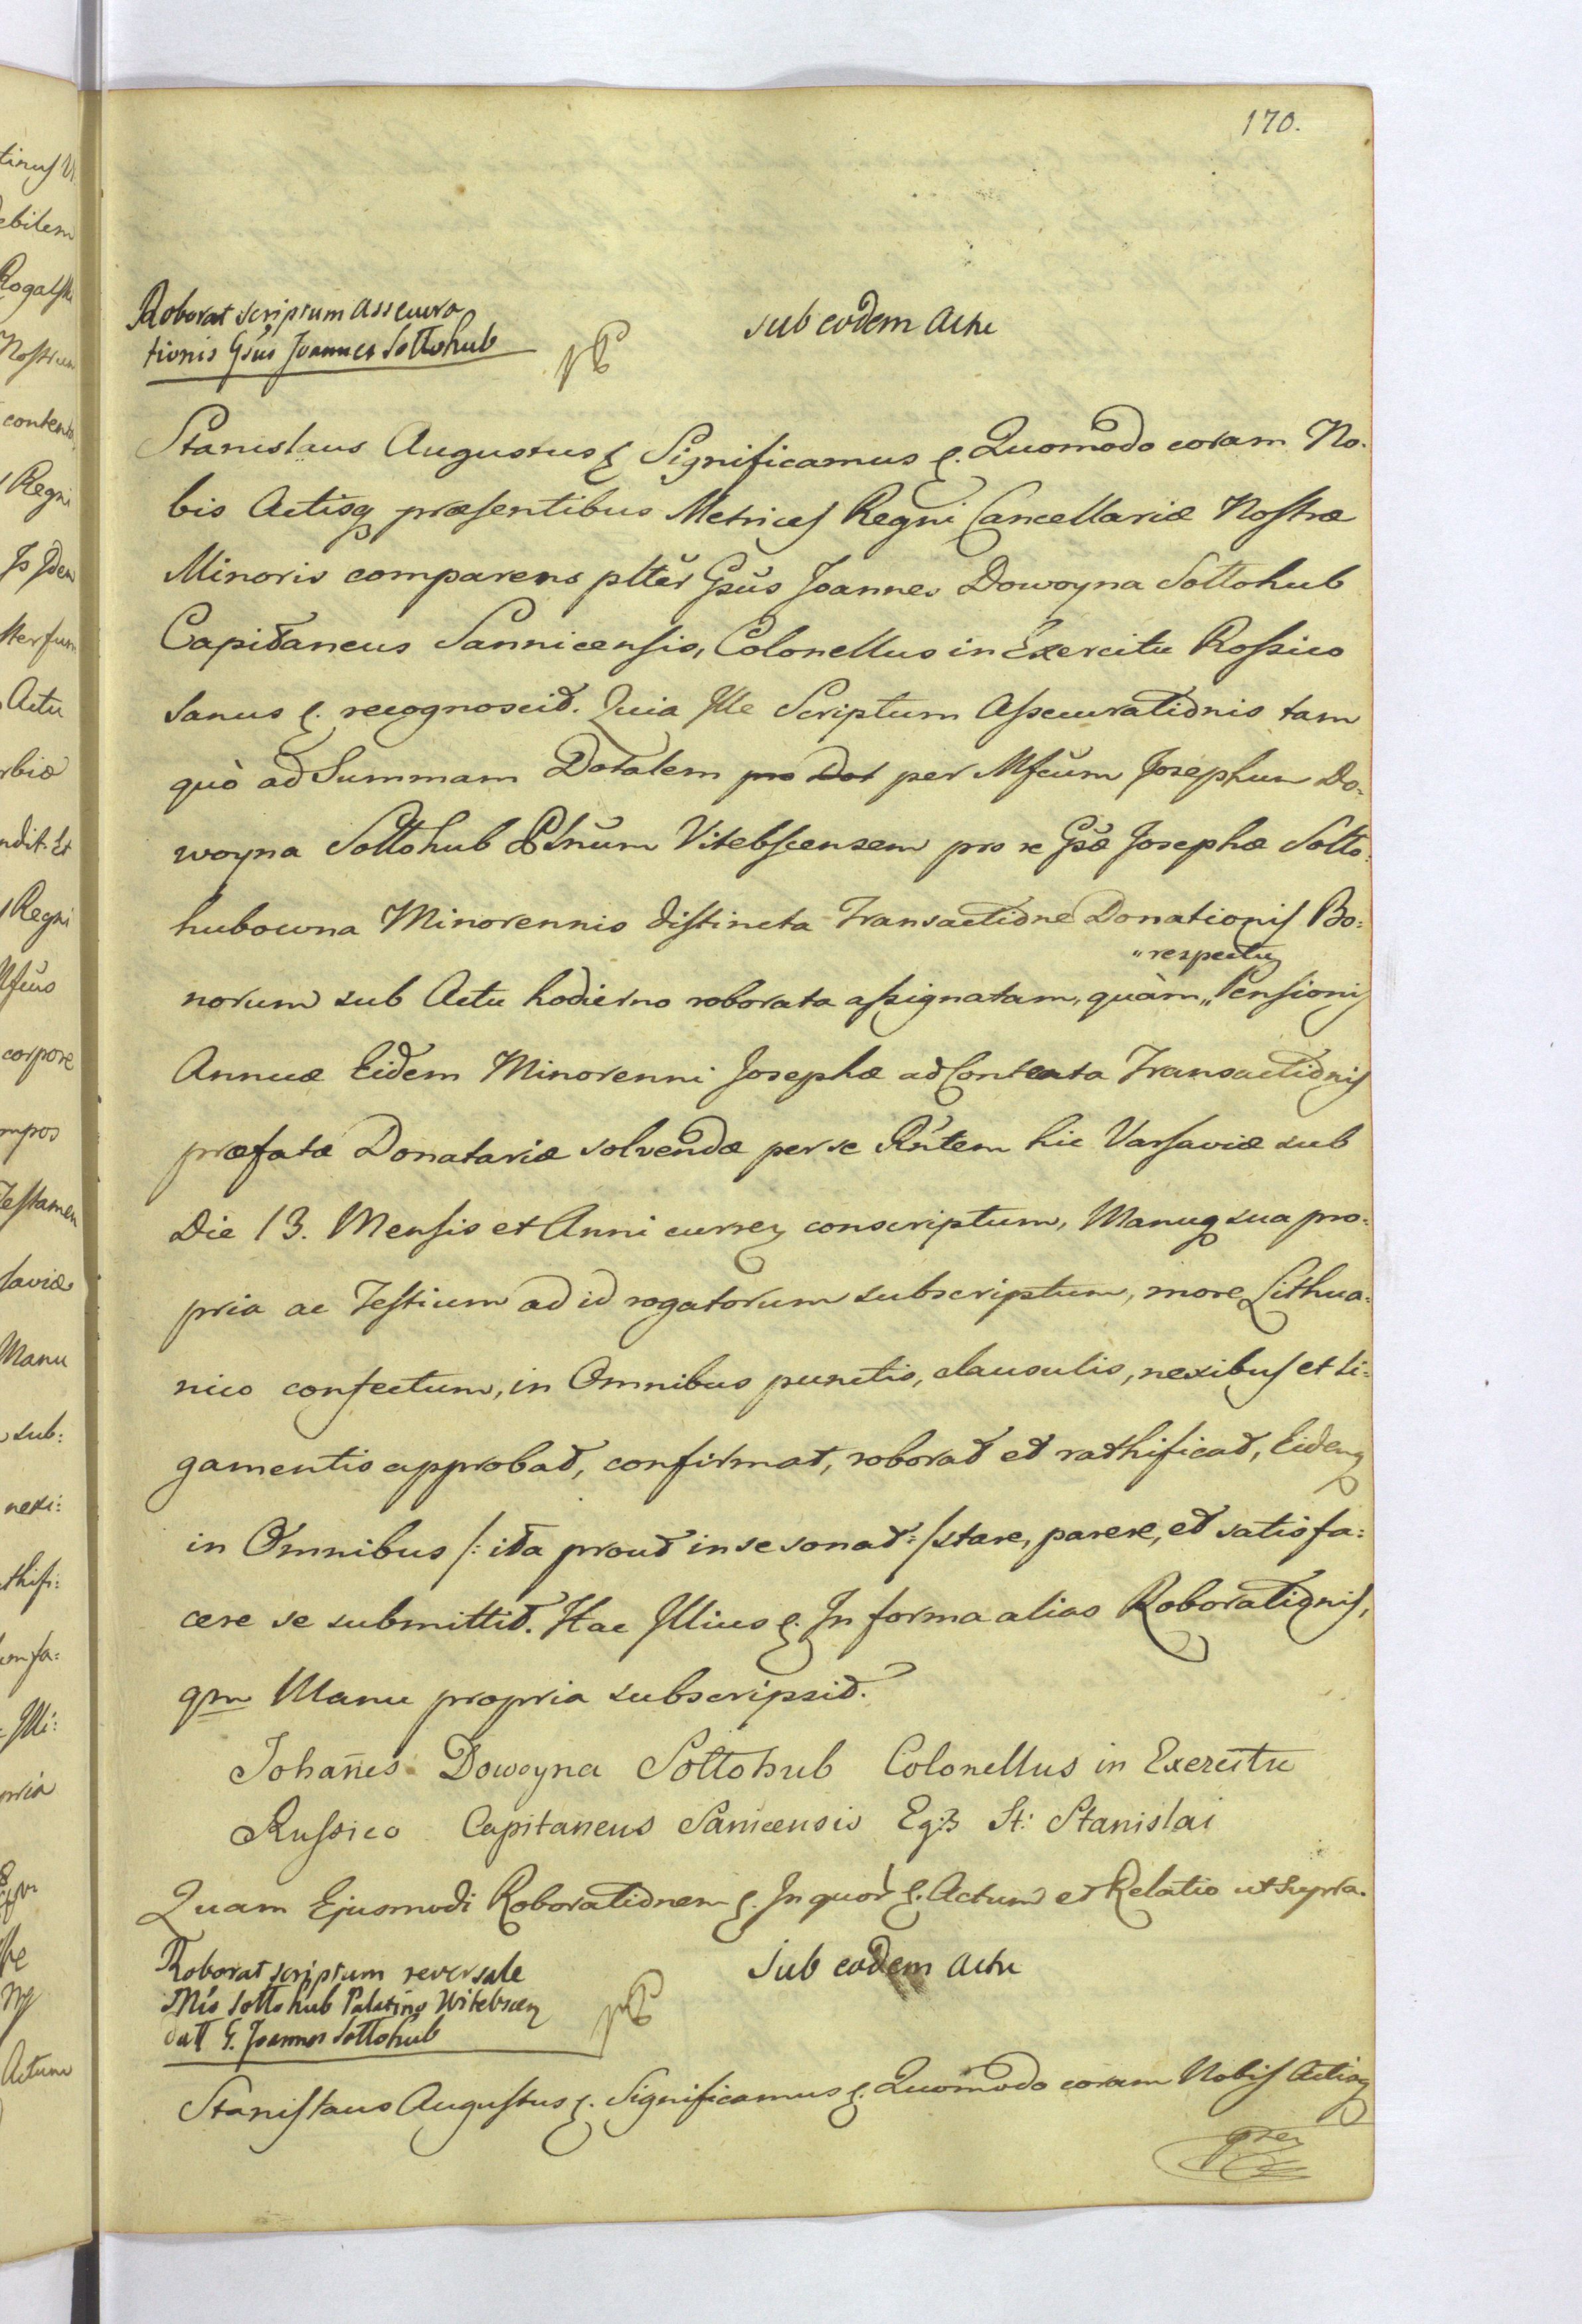 170.
Roborat scriptum assecura
tionis Gsus Joannes Sołłohub
sub eodem Actu
Stanislaus Augustus &. Significamus &. Quomodo coram No:
bis Actisq præsentibus Metrices Regni Cancellariæ Nostræ
Minoris comparens plter Gsus Joannes Dowoyna Sołłohub
Capitaneus Sannicensis, Colonellus in Exercitu Rossico
sanus &. recognoscit. Quia Ille Scriptum Assecurationis tam
quò ad Summam Dotalem pro Dot per Mfcum Josephum Do:
woyna Sołłohub Plnum Vitebscensem pro se Gsæ Josephæ Sołło:
hubowna Minorennis distincta Transactione Donationis Bo:
„respectu
norum sub Actu hodierno roborata assignatam, quàm „Pensionis
Annuæ Eidem Minorenni Josephæ ad Contenta Transactionis
præfatæ Donatariæ solvendæ per se Rntem hic Varsaviæ sub
Die 13. Mensis et Anni curren conscriptum, Manuq sua pro:
pria ac Testium ad id rogatorum subscriptum, more Lithua:
nico confectum, in Omnibus punctis, clausulis, nexibus et li:
gamentis approbat, confirmat, roborat et rathificat, Eidemq
in Omnibus /: ita prout in se sonat :/ stare, parere, et satisfa:
cere se submittit. Hac Illius &. In forma alias Roborationis,
qm Manu propria subscripsit.
Johannes Dowoyna Sołłohub Colonellus in Exercitu
Russico Capitaneus Sanicensis Eq: St: Stanislai
Quam Ejusmodi Roborationem &. In quor &. Actum et Relatio ut supra.
Roborat scriptum reversale
Mis Sołłohub Palatino Witebscen
datt G. Joannes Sołłohub
sub eodem actu
Stanislaus Augustus &. Significamus &. Quomodo coram Nobis Actisq
præn